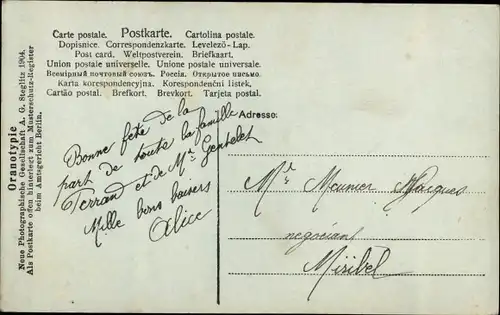 Carte postale. Postkarte. Cartolina postale.
Dopisnice. Correspondenzkarte. Levelező-Lap.
Post card. Weltpostverein. Briefkaart.
Union postale universelle. Unione postale universale.
Всемірный почтовый союзъ. Россія. Открытое письмо.
Karta korespondencyjna. Korespondenční lístek.
Cartão postal. Brefkort. Brevkort. Tarjeta postal.
Oranotypie
Neue Photographische Gesellschaft A. G. Steglitz 1904.
Als Postkarte offen hinterlegt zum Musterschutz-Register
beim Amtsgericht Berlin.
Bonne fête de la
part de toute la famille
Terrand et de Mr Gentelet
Mille bons baisers
Alice
Adresse:
Mr Meunier Jacques
negociant
Miribel